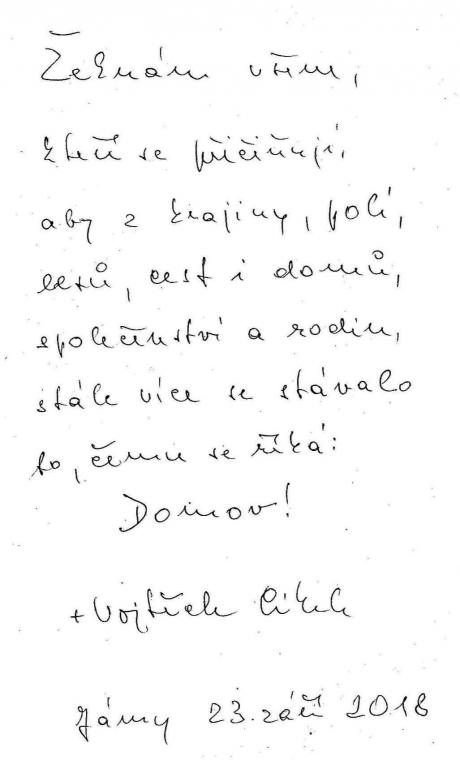 Žehnám všem,
kteří se přičiňují,
aby z krajiny, polí,
lesů, cest i domů,
společenství a rodin,
stále více se stávalo
to, čemu se říká:
Domov!
+ Vojtěch Cikrle
Jámy 23. září 2018